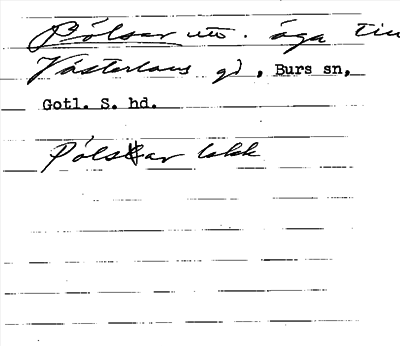 Pölsar utr. äga till
Västerlaus gd, Burs sn,
Gotl. S. hd.
Pölsar lokk